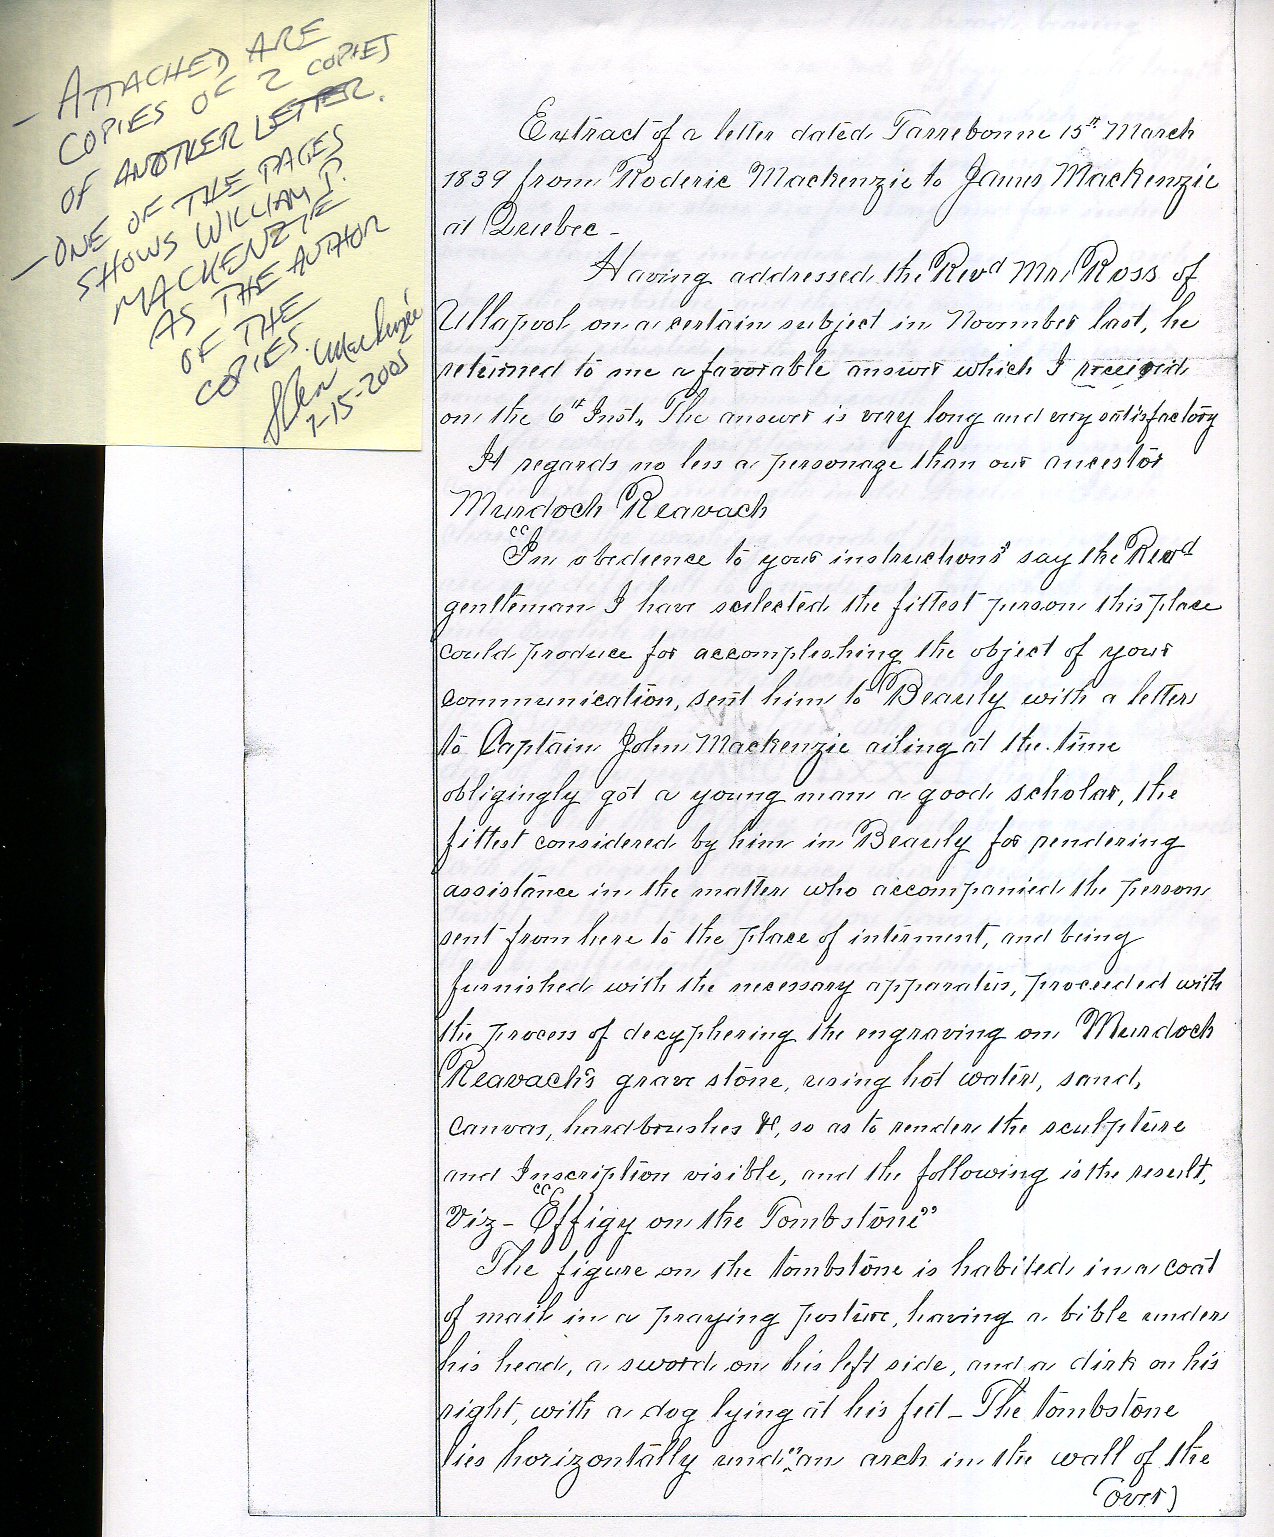 - ATTACHED ARE
COPIES OF 2 COPIES
OF ANOTHER LETTER.
- ONE OF THE PAGES
SHOWS WILLIAM P.
MACKENZIE
AS THE AUTHOR
OF THE
COPIES.
Mackenzie
7-15-2005
Extract of a letter dated Tarrebonne 15th March
1839 from Roderic Mackenzie to James Mackenzie
at Quebec -
Having addressed the Revd Mr. Ross of
Ullapool on a certain subject in November last, he
returned to me a favorable answer which I received
on the 6th Inst. The answer is very long and very satisfactory
It regards no less a personage than our ancestor
Murdoch Reavach
"In obedience to your instructions" say the Revd
gentleman I have selected the fittest person this place
could produce for accomplishing the object of your
communication, sent him to Beauly with a letter
to Captain John Mackenzie ailing at the time
obligingly got a young man a good scholar, the
fittest considered by him in Beauly for rendering
assistance in the matter who accompanied the person
sent from here to the place of interment, and being
furnished with the necessary apparatus, proceeded with
the process of decyphering the engraving on Murdoch
Reavach's grave stone, using hot water, sand,
canvas, hardbrushes &, so as to render the sculpture
and Inscription visible, and the following is the result,
Viz - "Effigy on the Tombstone"
The figure on the tombstone is habited in a coat
of mail in a praying posture, having a bible under
his head, a sword on his left side, and a dirk on his
right, with a dog lying at his feet - The tombstone
lies horizontally under an arch in the wall of the
(over)